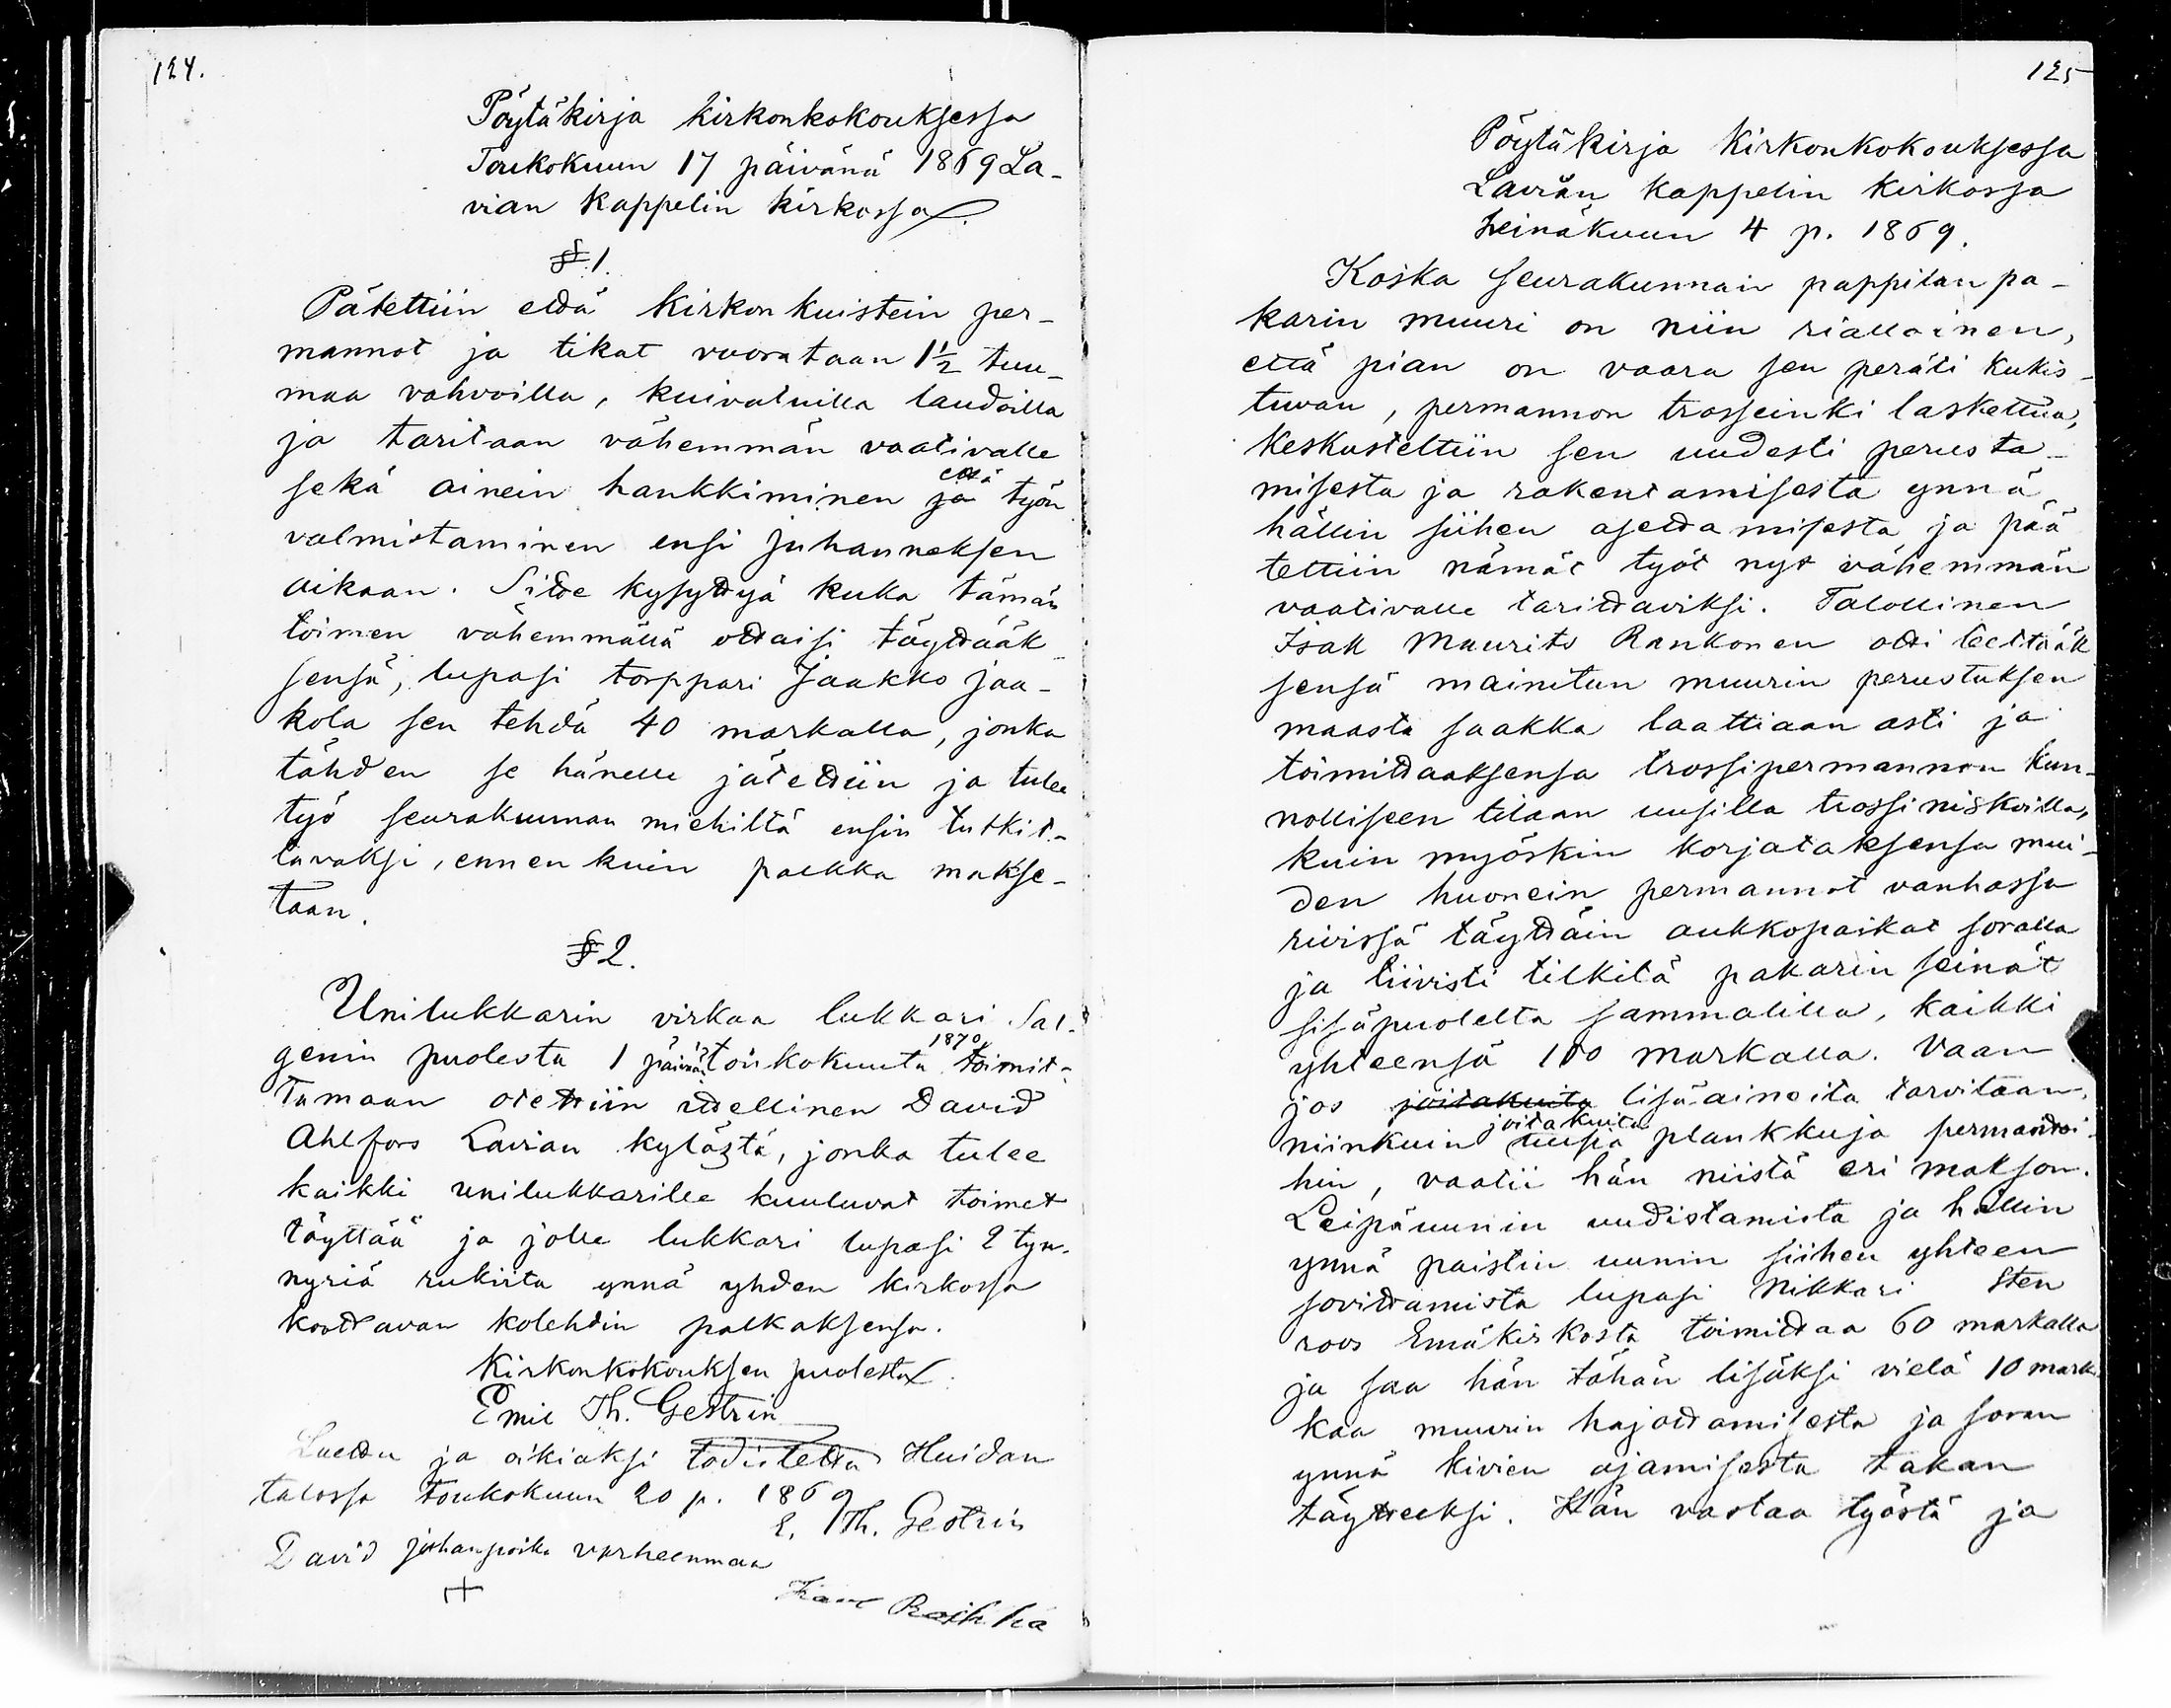 124.
Pöytäkirja kirkonkokouksessa
Toukokuun 17 päivänä 1869 La-
vian kappelin kirkossa.
§ 1.
Pätettiin että kirkon kuistein per-
mannot ja tikat vuorataan 1 1/2 tuu-
maa vahvoilla, kuivatuilla laudoilla
ja taritaan vähemmän vaativalle
sekä ainein hankkiminen ja että työn
valmistaminen ensi juhanneksen
aikaan. Sitte kysyttyä kuka tämän
toimen vähemmällä ottaisi täyttääk-
sensä, lupasi torppari Jaakko Jaa-
kola sen tehdä 40 markalla, jonka
tähden se hänelle jätettiin ja tulee
työ seurakunnan miehiltä ensin tutkit-
tavaksi, ennenkuin palkka makse-
taan.
§ 2.
Unilukkarin virkaa lukkari Sal-
genin puolesta 1 päivää toukokuuta 1870 toimit-
tamaan otettiin itsellinen David
Ahlfors Lavian kylästä, jonka tulee
kaikki unilukkarille kuuluvat toimet
täyttää ja jolle lukkari lupasi 2 tyn-
nyriä rukiita ynnä yhden kirkossa
koottavan kolehdin palkaksensa.
Kirkonkokouksen puolesta
Emil Th. Gestrin
Luettu ja oikiaksi todistettu Huidan
talossa toukokuun 20 p. 1869
E. Th. Gestrin
David Juhanpoika Varheenmaa
Karl Raihka
125
Pöytäkirja Kirkonkokouksessa
Lavian kappelin kirkossa
heinäkuun 4 p. 1869.
Koska seurakunnan pappilan pa-
karin muuri on niin riallainen,
että pian on vaara sen peräti kukis-
tuvan, permannon trosseinki laskettua,
keskusteltiin sen uudesti perusta-
misesta ja rakentamisesta ynnä
hällin siihen asettamisesta ja pää
tettiin nämät työt nyt vähemmän
vaativalle tarittaviksi. Talollinen
Isak Maurits Rankonen otti teettääk
sensä mainitun muurin perustuksen
maasta saakka laattiaan asti ja
toimittaaksensa trossipermannon kun-
nolliseen tilaan uusilla trossiniskoilla,
kuin myöskin korjataksensa mui-
den huonein permannot vanhassa
rivissä täyttäin aukkopaikat soralla
ja tiivisti tilkitä pakarin seinät
sisäpuolelta sammalilla, kaikki
yhteensä 100 markalla. Vaan
jos joitakuita lisä-aineita tarvitaan,
niinkuin joitakuita uusia plankkuja permantoi-
hin, vaatii hän niistä eri makson.
Leipäuunin uudistamista ja hällin
ynnä paistin uunin siihen yhteen
sovittamista lupasi Nikkari Sten
roos Emäkirkosta toimittaa 60 markalla
ja saa hän tähän lisäksi vielä 10 mark-
kaa muurin hajottamisesta ja soran
ynnä kivien ajamisesta takan
täytteeksi. Hän vastaa työstä ja